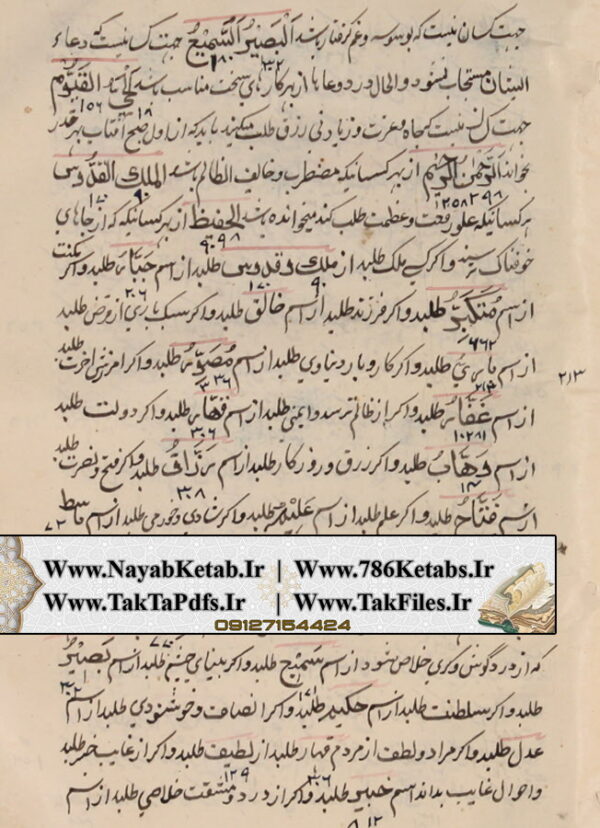 جهت کسان نیست که بوسوسه و غم گرفتار باشد اَلْبَصیرُ السَّمیعُ جهت کسانیست که دعاء
۳۰۲ ۱۸۰
ایشان مستجاب نشود و الحال در دعاها از بهر کارهای سخت مناسب باشد الحَیّ القَیّوم
۱۸ ۱۵۶
جهت کسانیست که جاه و عزت و زیادتی رزق طلب میکنند باید که از اول صبح آفتاب بهر قدر
بخواند الرَّحمن الرَّحیم از بهر کسانیکه مضطرب و خایف الظالم باشد الملک القدوس
۲۹۸ ۲۵۸ ۹۰ ۱۷۰
بهر کسانیکه علو رفعت و عظمت طلب کند میخوانده باشد الحفیظ از بهر کسانیکه که از جاهای
۹۹۸
خوفناک ترسیده و اگر کسی ملک طلبد از ملک و قدوس طلبد از اسم جبار طلبد و اگر
۹۰ ۱۷۰ ۲۰۶
از اسم مُتکبّر طلبد و اگر فرزند طلبد از اسم خالق طلبد و اگر سبک باری از قرض طلبد
۶۶۲
از اسم باریُ طلبد و اگر کار و بار دنیاوی طلبد از اسم مُصَوّر طلبد و اگر امرزش اخرت طلبد
۲۱۳ ۳۳۶
از اسم غفّار طلبد و اگر از ظالم ترسد و ایمنی طلبد از اسم قهار طلبد و اگر دولت طلبد
۱۲۸۱ ۳۰۶
از اسم وَهّابُ طلبد و اگر رزق و روزگار طلبد از اسم رَزّاقُ طلبد و اگر فتح و نصرت طلبد
۳۰۸
از اسم فَتّاحُ طلبد و اگر علم طلبد از اسم عَلیم طلبد و اگر شادی و خورمی طلبد از اسم باسط
۷۲
Www.NayabKetab.Ir | Www.786Ketabs.Ir
Www.TakTaPdfs.Ir | Www.TakFiles.Ir
09127154424
که از درد گوش و کری خلاص شود از اسم سمیع طلبد و اگر بینای چشم طلبد از اسم بَصیرُ
۳۰۲
طلبد و اگر سلطنت طلبد از اسم حکیم طلبد و اگر انصاف و خوشنودی طلبد از اسم
عدل طلبد و اگر مراد و لطف از مردم قهار طلبد از لطیف طلبد و اگر از غایب خبر طلبد
۱۲۹
و احوال غایب بداند اسم خبیر طلبد و اگر از درد و مشقت خلاصی طلبد از اسم
۸۱۲